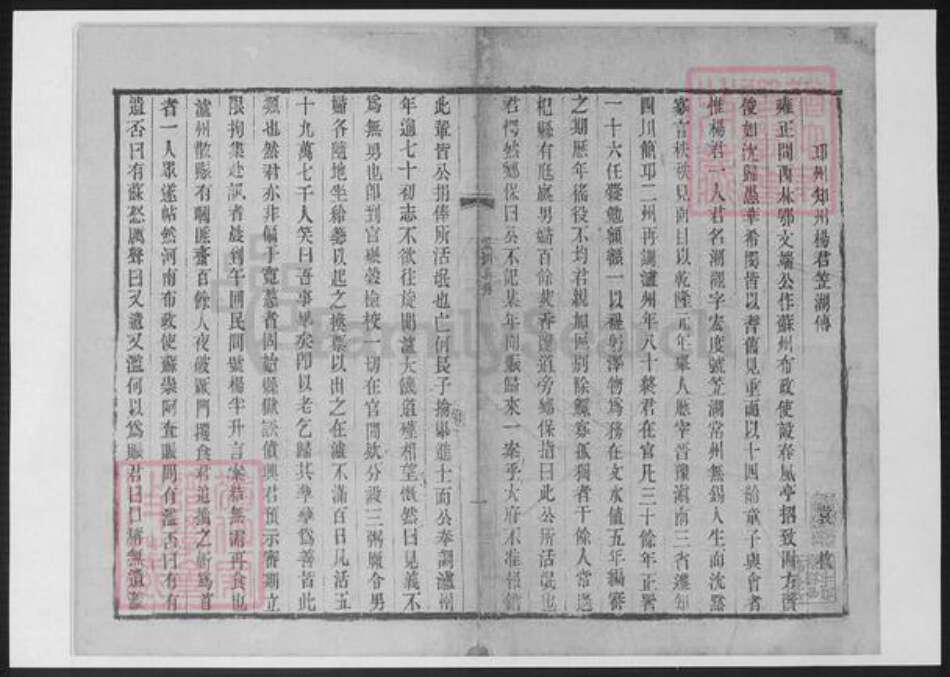 邛州知州楊君笠湖傳
袁枚
雍正間西林鄂文端公作蘇州布政使設春風亭招致四方賢
俊如沈歸愚華希閔皆以耆舊見重而以十四齡童子與會者
惟楊君一人君名潮觀字宏度號笠湖常州無錫人生而沈默
寡言秩秩見眉目以乾隆元年舉人歷宰晉豫滇南三省遷知
四川簡邛二州再調瀘州年八十終君在官凡三十餘年正署
一十六任養勉願振一以 躬澤物為務在文水值五年編審
之期歷年徭役不均君親加區別除鰥寡孤獨者千餘人常過
杞縣有尫羸男婦百餘炷香擁道旁鄉保指曰此公所活氓也
君愕然鄉保曰公不記某年開賑歸來一案乎大府不准報銷
此輩皆公捐俸所活氓也亡何長子掄舉進士而公奉調瀘州
年過七十初志不欲往旋聞瀘大饑道殣相望慨然曰見義不
為無男也即到官 發檢校一切在官閒款分設三粥廠令男
婦各隨地坐給籌以起之換票以出之在瀘不滿百日凡活五
十九萬七千人笑曰吾事畢矣即以老乞歸其孳孳為善皆此
類也然君亦非偏于寬慈者固始縣獄訟儥興君預示審期立
限拘集赴訊者晨到午回民間號楊半升言案結無需再食也
瀘州散賑有嘓匪 百餘人夜破厰門擾食君追擒之斬為首
者一人眾遂帖然河南布政使蘇崇阿查賑問有濫否曰有有
遺否曰有蘇怒厲聲曰又遺又濫何以為賑君曰曰 無遺濫